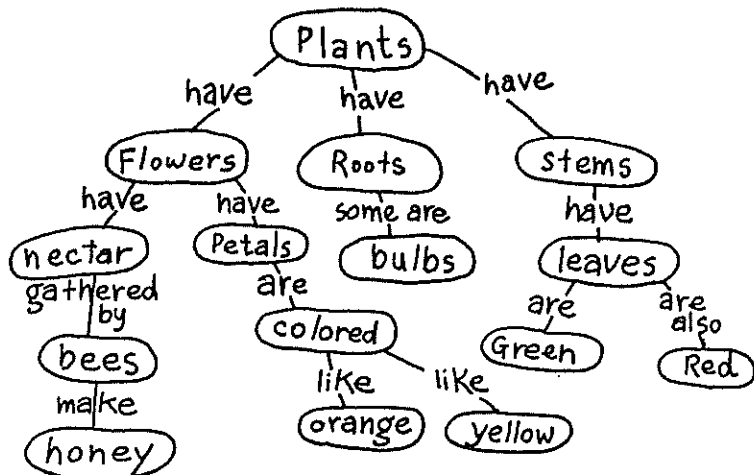 Plants
have have have
Flowers Roots stems
have have some are have
nectar Petals bulbs leaves
gathered
by
are are are
also
bees colored Green Red
make like like
honey orange yellow